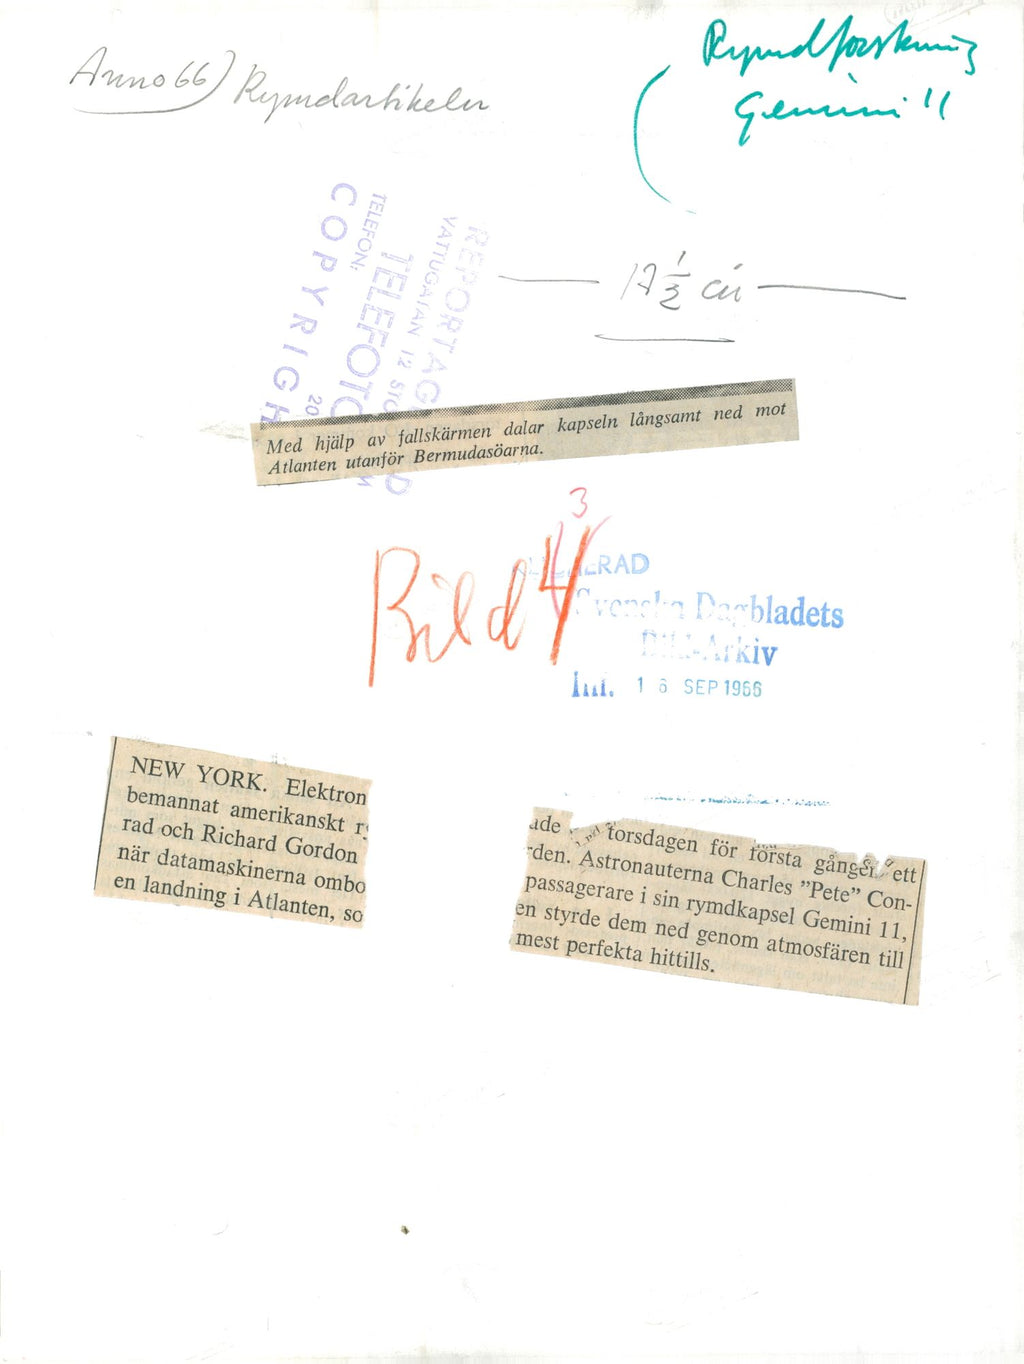 Anno 66) Rymdartikeln
Rymdforskning
Gemini 11
REPORTAG
VATTUGATAN 12 STO
TELEFOTO
TELEFON:
COPYRIGH
17 1/2 cii
Med hjälp av fallskärmen dalar kapseln långsamt ned mot
Atlanten utanför Bermudasöarna.
3
Bild 4
ERAD
Svenska Dagbladets
Bild-Arkiv
Inf. 16 SEP 1966
NEW YORK. Elektron
bemannat amerikanskt r
rad och Richard Gordon
när datamaskinerna ombo
en landning i Atlanten, so
ade torsdagen för första gången ett
rden. Astronauterna Charles "Pete" Con-
passagerare i sin rymdkapsel Gemini 11,
en styrde dem ned genom atmosfären till
mest perfekta hittills.